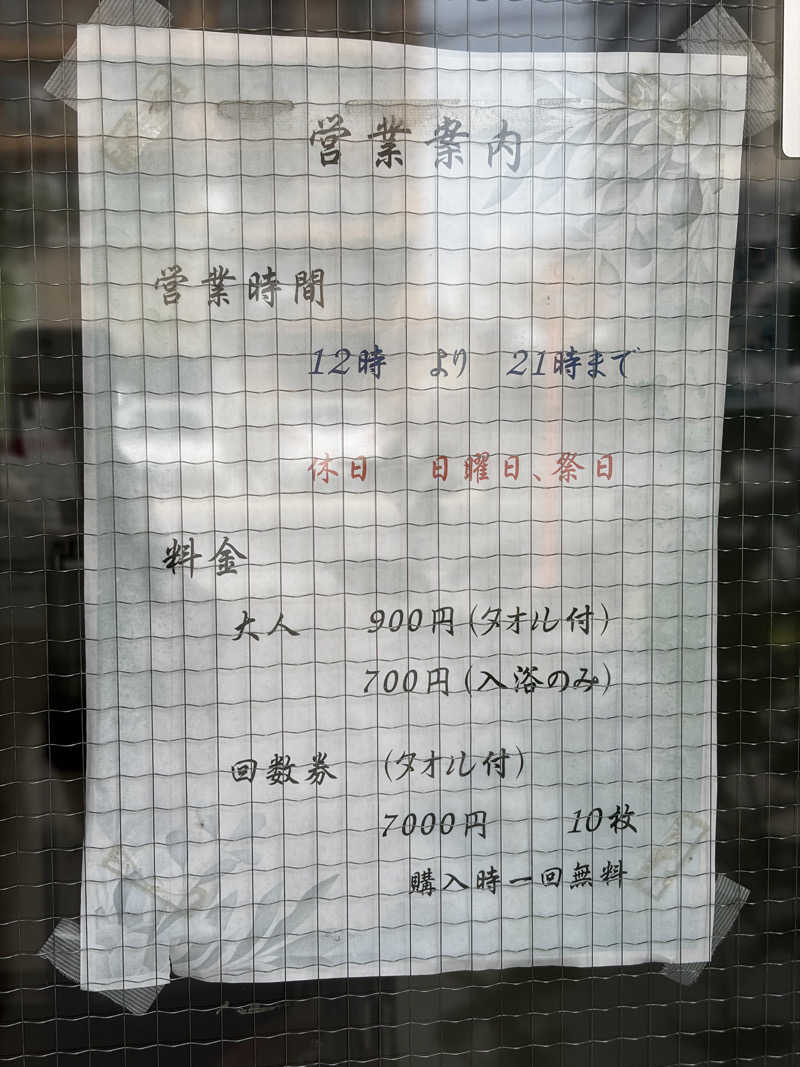 営業案内
営業時間
12時 より 21時まで
休日 日曜日、祭日
料金
大人 900円(タオル付)
700円(入浴のみ)
回数券 (タオル付)
7000円 10枚
購入時一回無料